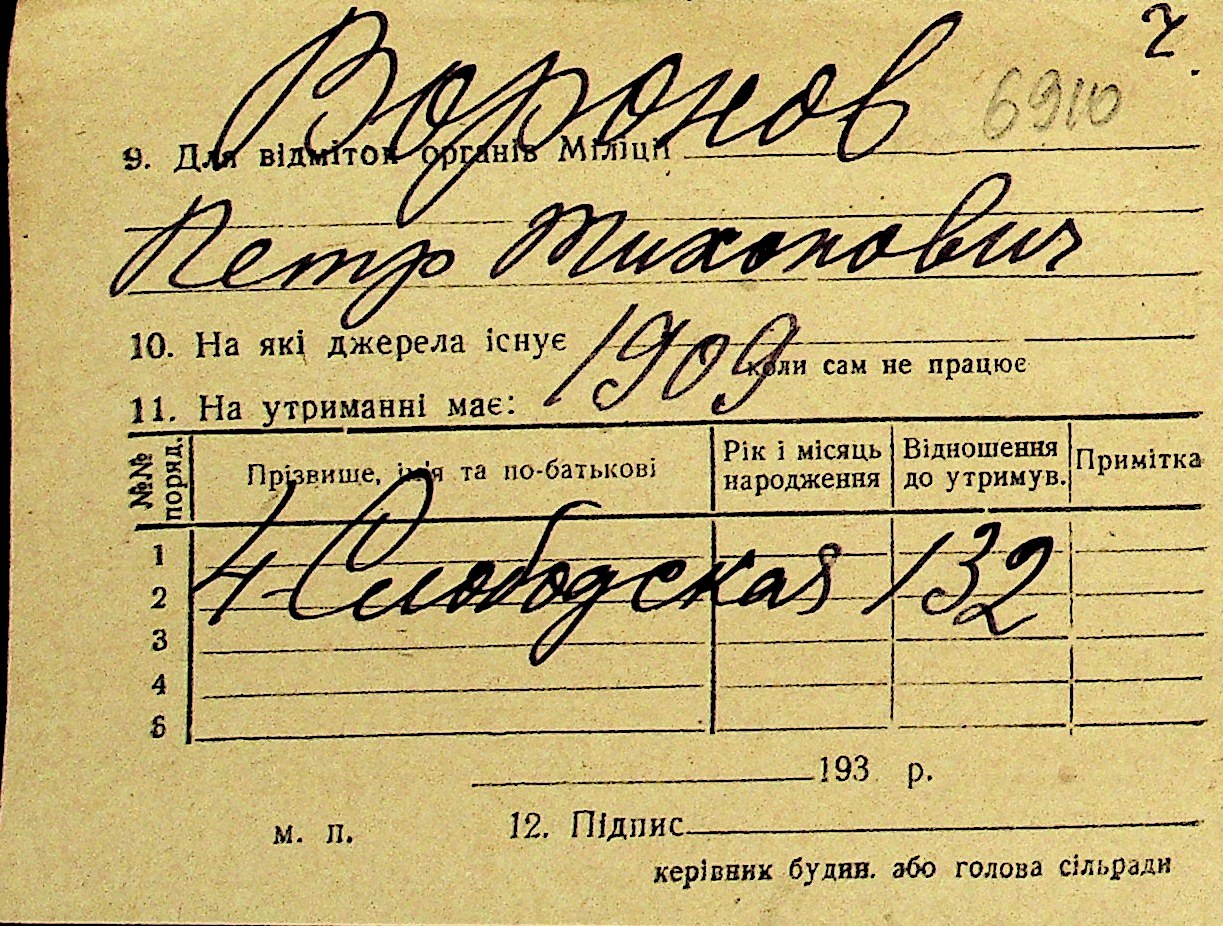 г.
Воронов 6910
9. Для відміток органів Міліції
Петр Тихонович
10. На які джерела існує 1909
коли сам не працює
11. На утриманні має:
№№ поряд. Прізвище, ім'я та по-батькові Рік і місяць народження Відношення до утримув. Примітка
1
4 Слободская 132
2
3
4
5
193 р.
м. п. 12. Підпис
керівник будин. або голова сільради